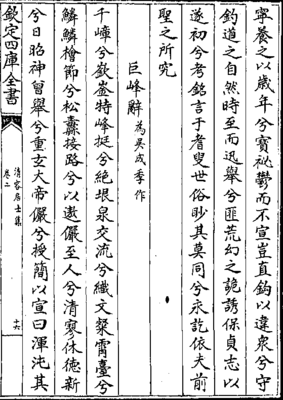 寧養之以歲年兮寶祕鬱而不宣豈直鈎以違衆兮守
釣道之自然時至而迅舉兮匪荒幻之詭誘保貞志以
遂初兮考銘言于耆叟世俗眇其莫同兮永訖依夫前
聖之所究
巨峰辭為吳成季作
千嶂兮嶔崟特峰挺兮絕垠泉交流兮纖文粲霄臺兮
鱗鱗檜節兮松纛接路兮以遨儼至人兮清寥休德新
兮日昭神曾舉兮重玄大帝儼兮授簡以宣曰渾沌其
欽定四庫全書
清容居士集
卷二
十六